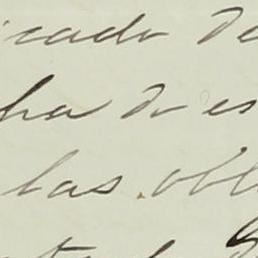 icado de
ha de es
las obl